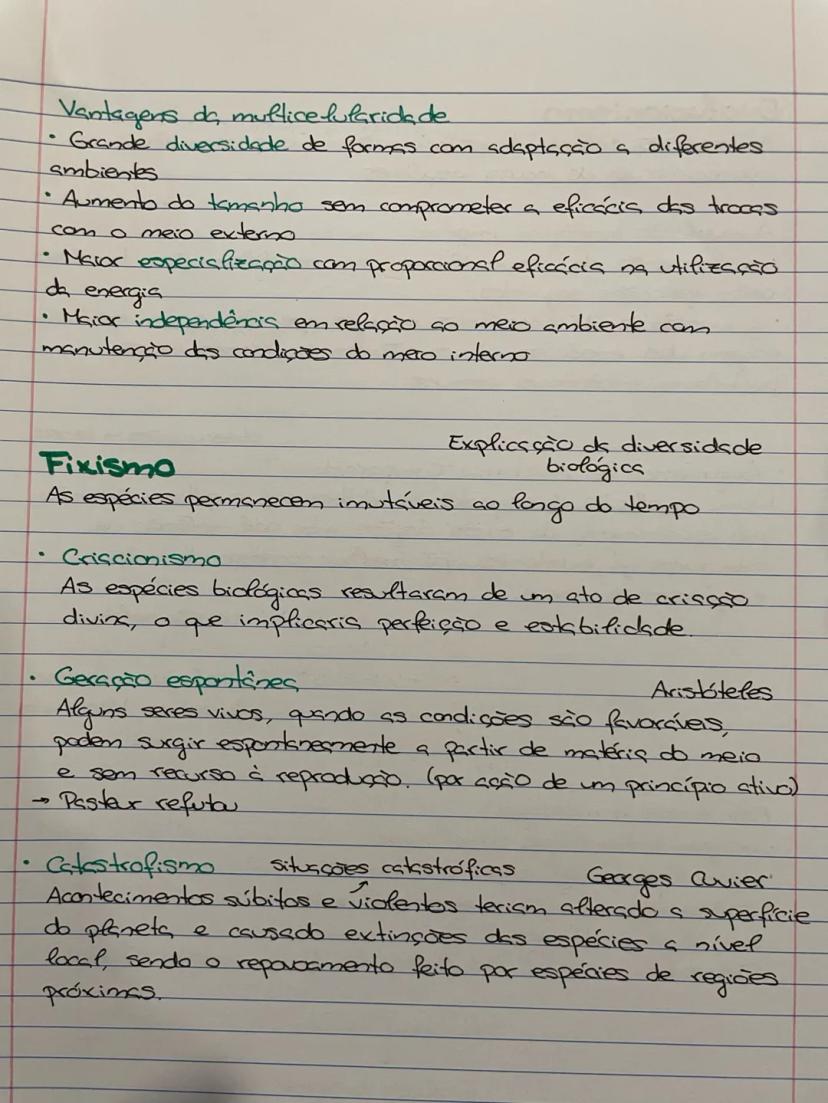 Vantagens da multicelularidade
• Grande diversidade de formas com adaptação a diferentes
ambientes
• Aumento do tamanho sem comprometer a eficácia das trocas
com o meio externo
• Maior especialização com proporcional eficácia na utilização
da energia
• Maior independência em relação ao meio ambiente com
manutenção das condições do meio interno
Explicação da diversidade
biológica
Fixismo
As espécies permanecem imutáveis ao longo do tempo
• Criacionismo
As espécies biológicas resultaram de um ato de criação
divina, o que implicaria perfeição e estabilidade.
• Geração espontânea Aristóteles
Alguns seres vivos, quando as condições são favoráveis,
podem surgir espontaneamente a partir de matéria do meio
e sem recurso à reprodução. (por ação de um princípio ativo)
→ Pasteur refutou
• Catastrofismo situações catastróficas Georges Cuvier
Acontecimentos súbitos e violentos teriam alterado a superfície
do planeta e causado extinções das espécies a nível
local, sendo o repovoamento feito por espécies de regiões
próximas.